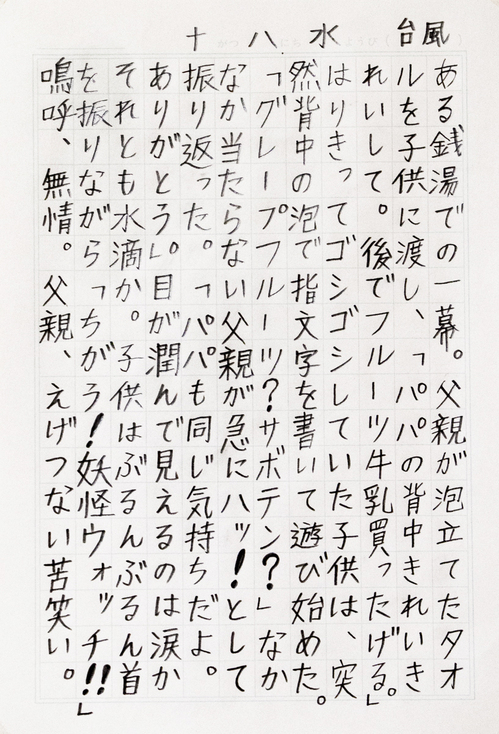 十 八 水 台風
ある銭湯での一幕。父親が泡立てたタオ
ルを子供に渡し、「パパの背中きれいき
れいして。後でフルーツ牛乳買ったげる。」
はりきってゴシゴシしていた子供は、突
然背中の泡で指文字を書いて遊び始めた。
「グレープフルーツ？サボテン？」なか
なか当たらない父親が急にハッ！として
振り返った。「パパも同じ気持ちだよ。
ありがとう」。目が潤んで見えるのは涙か
それとも水滴か。子供はぶるんぶるん首
を振りながら「ちがう！妖怪ウォッチ!!」
嗚呼、無情。父親、えげつない苦笑い。